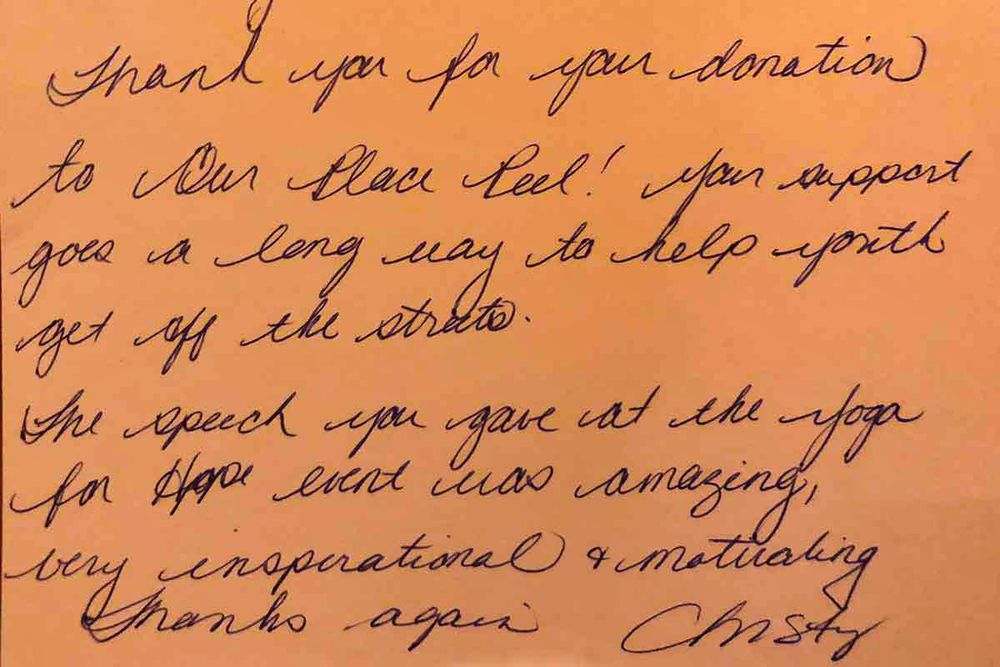 Thank you for your donation
to Our Place Peel! Your support
goes a long way to help youth
get off the streets.
The speech you gave at the Yoga
for Hope event was amazing,
very inspirational & motivating
Thanks again Christy